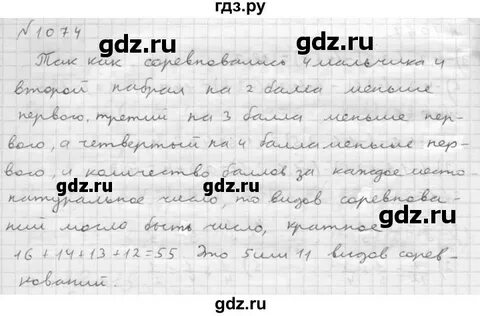 гдз.ру
№1074
Так как соревновались 4 мальчика и
второй набрал на 2 балла меньше
первого, третий на 3 балла меньше пер-
вого, а четвертый на 4 балла меньше пер-
вого, и количество баллов за каждое место
натуральное число, то видов соревнова-
ний могло быть число, кратное
16+14+13+12=55 Это 5 или 11 видов сорев-
нований.
gdz.ru
gdz.ru
gdz.ru
gdz.ru
gdz.ru
gdz.ru
gdz.ru
gdz.ru
гдз.ру